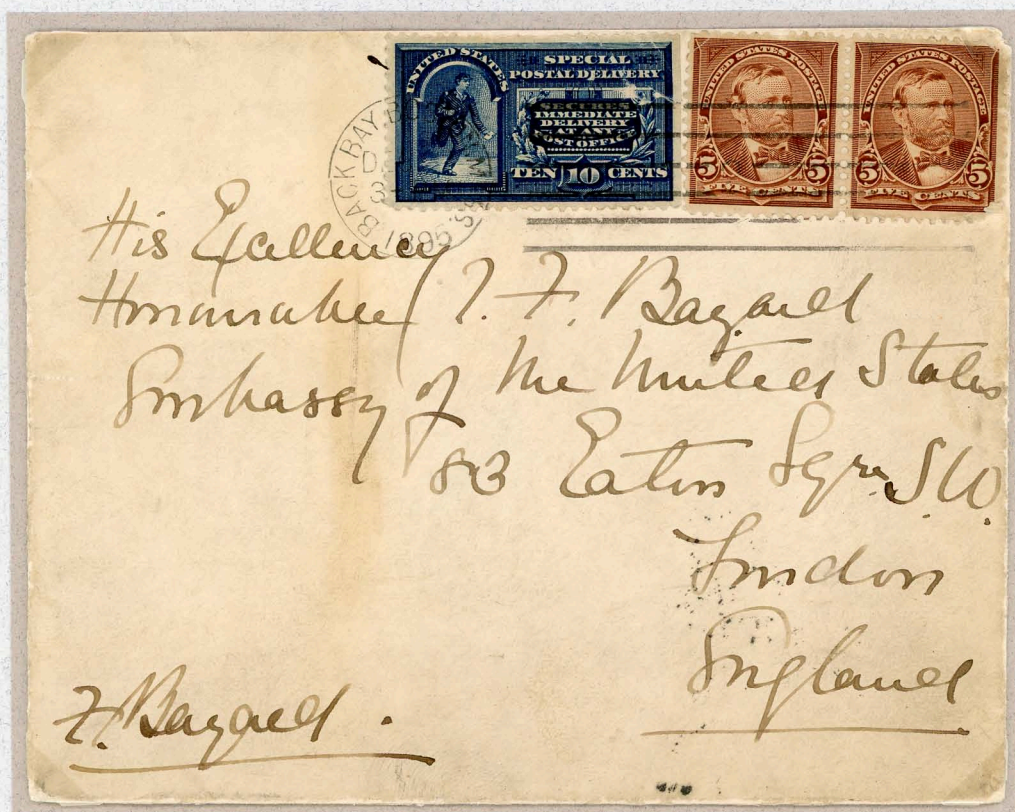 UNITED STATES
SPECIAL
POSTAL DELIVERY
SECURES
IMMEDIATE
DELIVERY
AT ANY
POST OFFICE
TEN 10 CENTS
UNITED STATES POSTAGE
5 5
FIVE CENTS
UNITED STATES POSTAGE
5 5
FIVE CENTS
BACK BAY
His Excellency
Honourable T. F. Bayard
Embassy of the United States
83 Eaton Sqre. S.W.
London
England
F. Bayard.